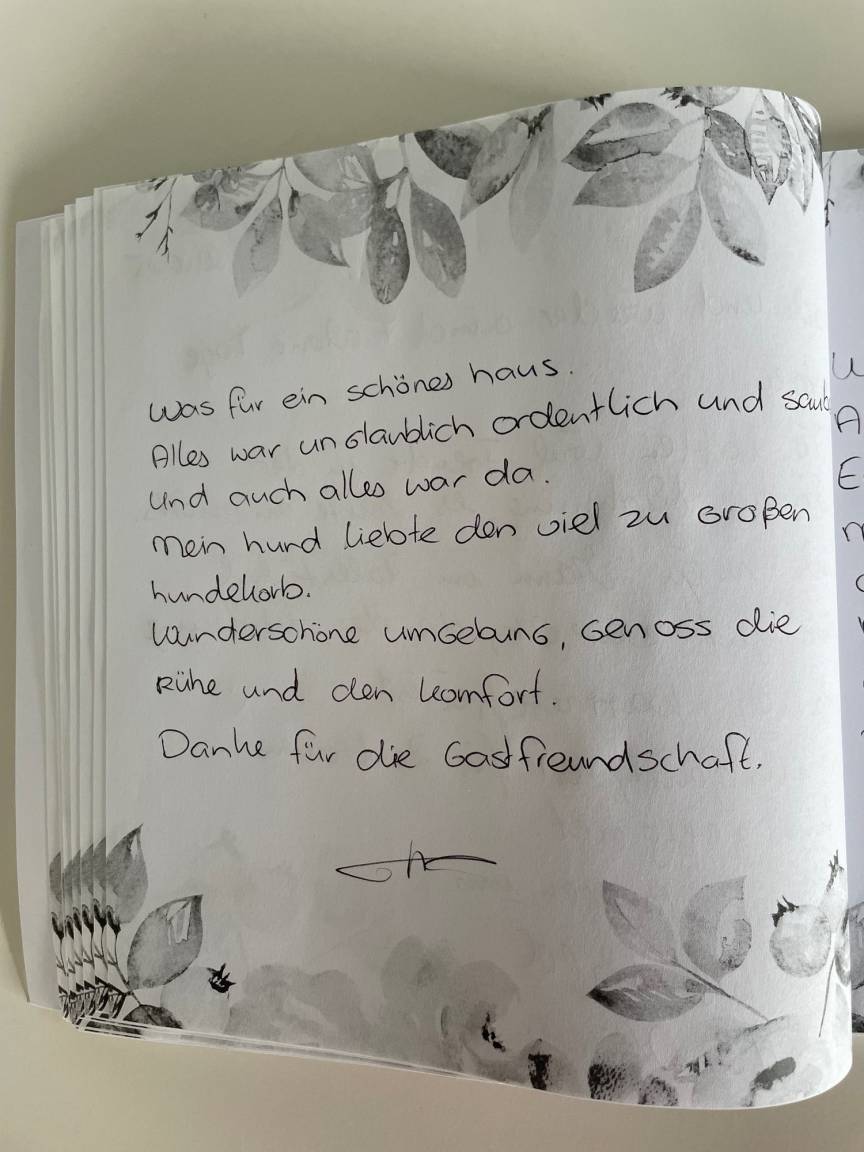 Was für ein schönes haus.
Alles war unglaublich ordentlich und saub
Und auch alles war da.
Mein hund liebte den viel zu Großen
hundekorb.
Wunderschöne umgebung, genoss die
Rühe und den komfort.
Danke für die Gastfreundschaft.
U
A
E